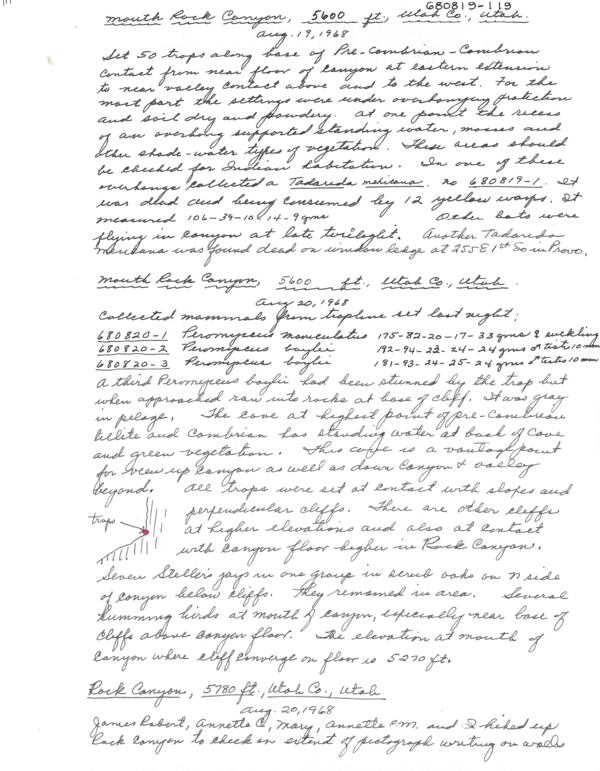 680819-119
Mouth Rock Canyon, 5600 ft., Utah Co., Utah.
Aug. 19, 1968
Set 50 traps along base of Pre-Cambrian-Cambrian
contact from near floor of canyon at eastern extension
to near valley contact above and to the west. For the
most part the settings were under overhanging protection
and soil dry and powdery. At one point the recess
of an overhang supported standing water, mosses and
other shade-water types of vegetation. These areas should
be checked for Indian habitation. In one of these
overhangs collected a Tadarida mexicana no 680819-1. It
was dead and being consumed by 12 yellow wasps. It
measured 106-39-10-14-9 gms Other bats were
flying in canyon at late twilight. Another Tadarida
mexicana was found dead on window ledge at 255 E 1st So in Provo.
Mouth Rock Canyon, 5600 ft., Utah Co., Utah.
Aug 20, 1968
Collected mammals from trapline set last night:
680820-1 Peromyscus maniculatus 175-82-20-17-33 gms ♀ suckling
680820-2 Peromyscus boylii 192-94-22-24-24 gms ♂ test 10 mm
680820-3 Peromyscus boylii 181-93-24-25-24 gms ♂ testes 10 mm
A third Peromyscus boylii had been stunned by the trap but
when approached ran into rocks at base of cliff. It was gray
in pelage. The cave at highest point of pre-Cambrian
tillite and Cambrian has standing water at back of cave
and green vegetation. This cave is a vantage point
for view up canyon as well as down canyon & valley
beyond. All traps were set at contact with slopes and
traps perpendicular cliffs. There are other cliffs
at higher elevations and also at contact
with canyon floor higher in Rock Canyon.
Seven Steller's jays in one group in scrub oaks on N side
of canyon below cliffs. They remained in area. Several
humming birds at mouth of canyon, especially near base of
cliffs above canyon floor. The elevation at mouth of
canyon where cliff converge on floor is 5270 ft.
Rock Canyon, 5780 ft., Utah Co., Utah
Aug. 20, 1968
James Robert, Annetta C, Mary, Annette M. and I hiked up
Rock Canyon to check on extent of pictograph writing on walls